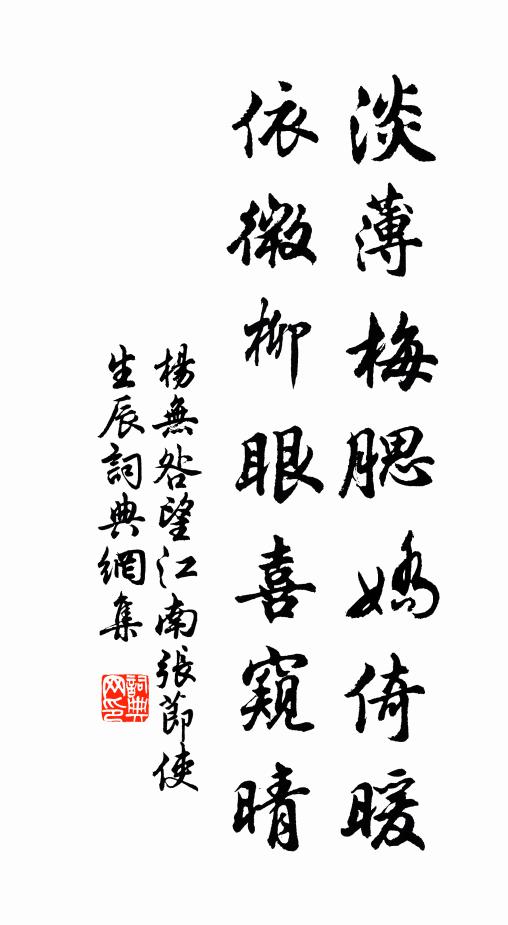 淡薄梅腮嬌倚暖
依微柳眼喜窺晴
楊無咎望江南張節使
生辰詞典網集
詞典
网印